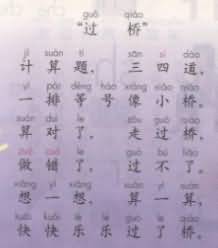 guò qiáo
“过 桥”
jì suàn tí sān sì dào
计算题，三四道，
yì pái děng hào xiàng xiǎo qiáo
一排等号像小桥。
suàn duì le zǒu guò qiáo
算对了，走过桥，
zuò cuò le guò bù liǎo
做错了，过不了。
xiǎng yì xiǎng suàn yí suàn
想一想，算一算，
kuài kuài lè lè guò le qiáo
快快乐乐过了桥。